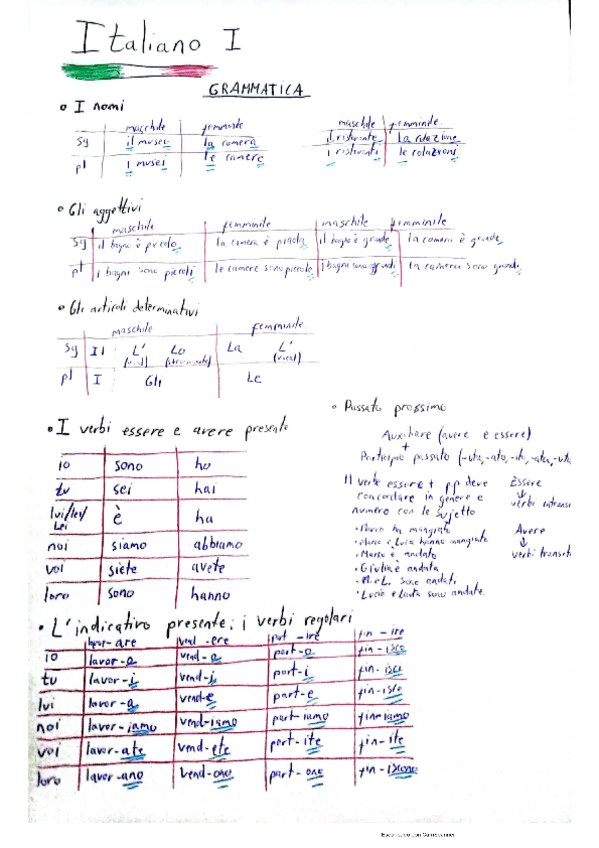 Italiano I
GRAMMATICA
• I nomi
maschile femminile maschile femminile
sg il museo la camera il ristorante La rotazione
pl i musei le camere i ristoranti le rotazioni
• Gli aggettivi
maschile femminile maschile femminile
sg il bagno è piccolo la camera è piccola il bagno è grande la camera è grande
pl i bagni sono piccoli le camere sono piccole i bagni sono grandi la camera sono grandi
• Gli articoli determinativi
maschile femminile
Sg Il L' Lo La L'
(vocal) (vocal)
pl I Gli Le
• I verbi essere e avere presente
io sono ho
tu sei hai
lui/lei/Lei è ha
noi siamo abbiamo
voi siete avete
loro sono hanno
• Passato prossimo
Auxiliare (avere e essere)
+
Participio passato (-uto, -ato, -ito,
Il verbo essere + p.p deve
concordare in genere e
numero con le sujetto
• Marco ha mangiato
e Luca hanno mangiato
• Marco è andato
• Giulia è andata
• M. e L. sono andati
• Lucia e Carla sono andate.
Essere
↓
verbi intransi
Avere
↓
verbi transiti
• L'indicativo presente: i verbi regolari
lavor-are vend-ere part-ire fin-ire
io lavor-o vend-o part-o fin-isco
tu lavor-i vend-i part-i fin-isci
lui lavor-a vend-e part-e fin-isce
noi lavor-iamo vend-iamo part-iamo fin-iamo
voi lavor-ate vend-ete part-ite fin-ite
loro lavor-ano vend-ono part-ono fin-iscono
Escaneado con CamScanner